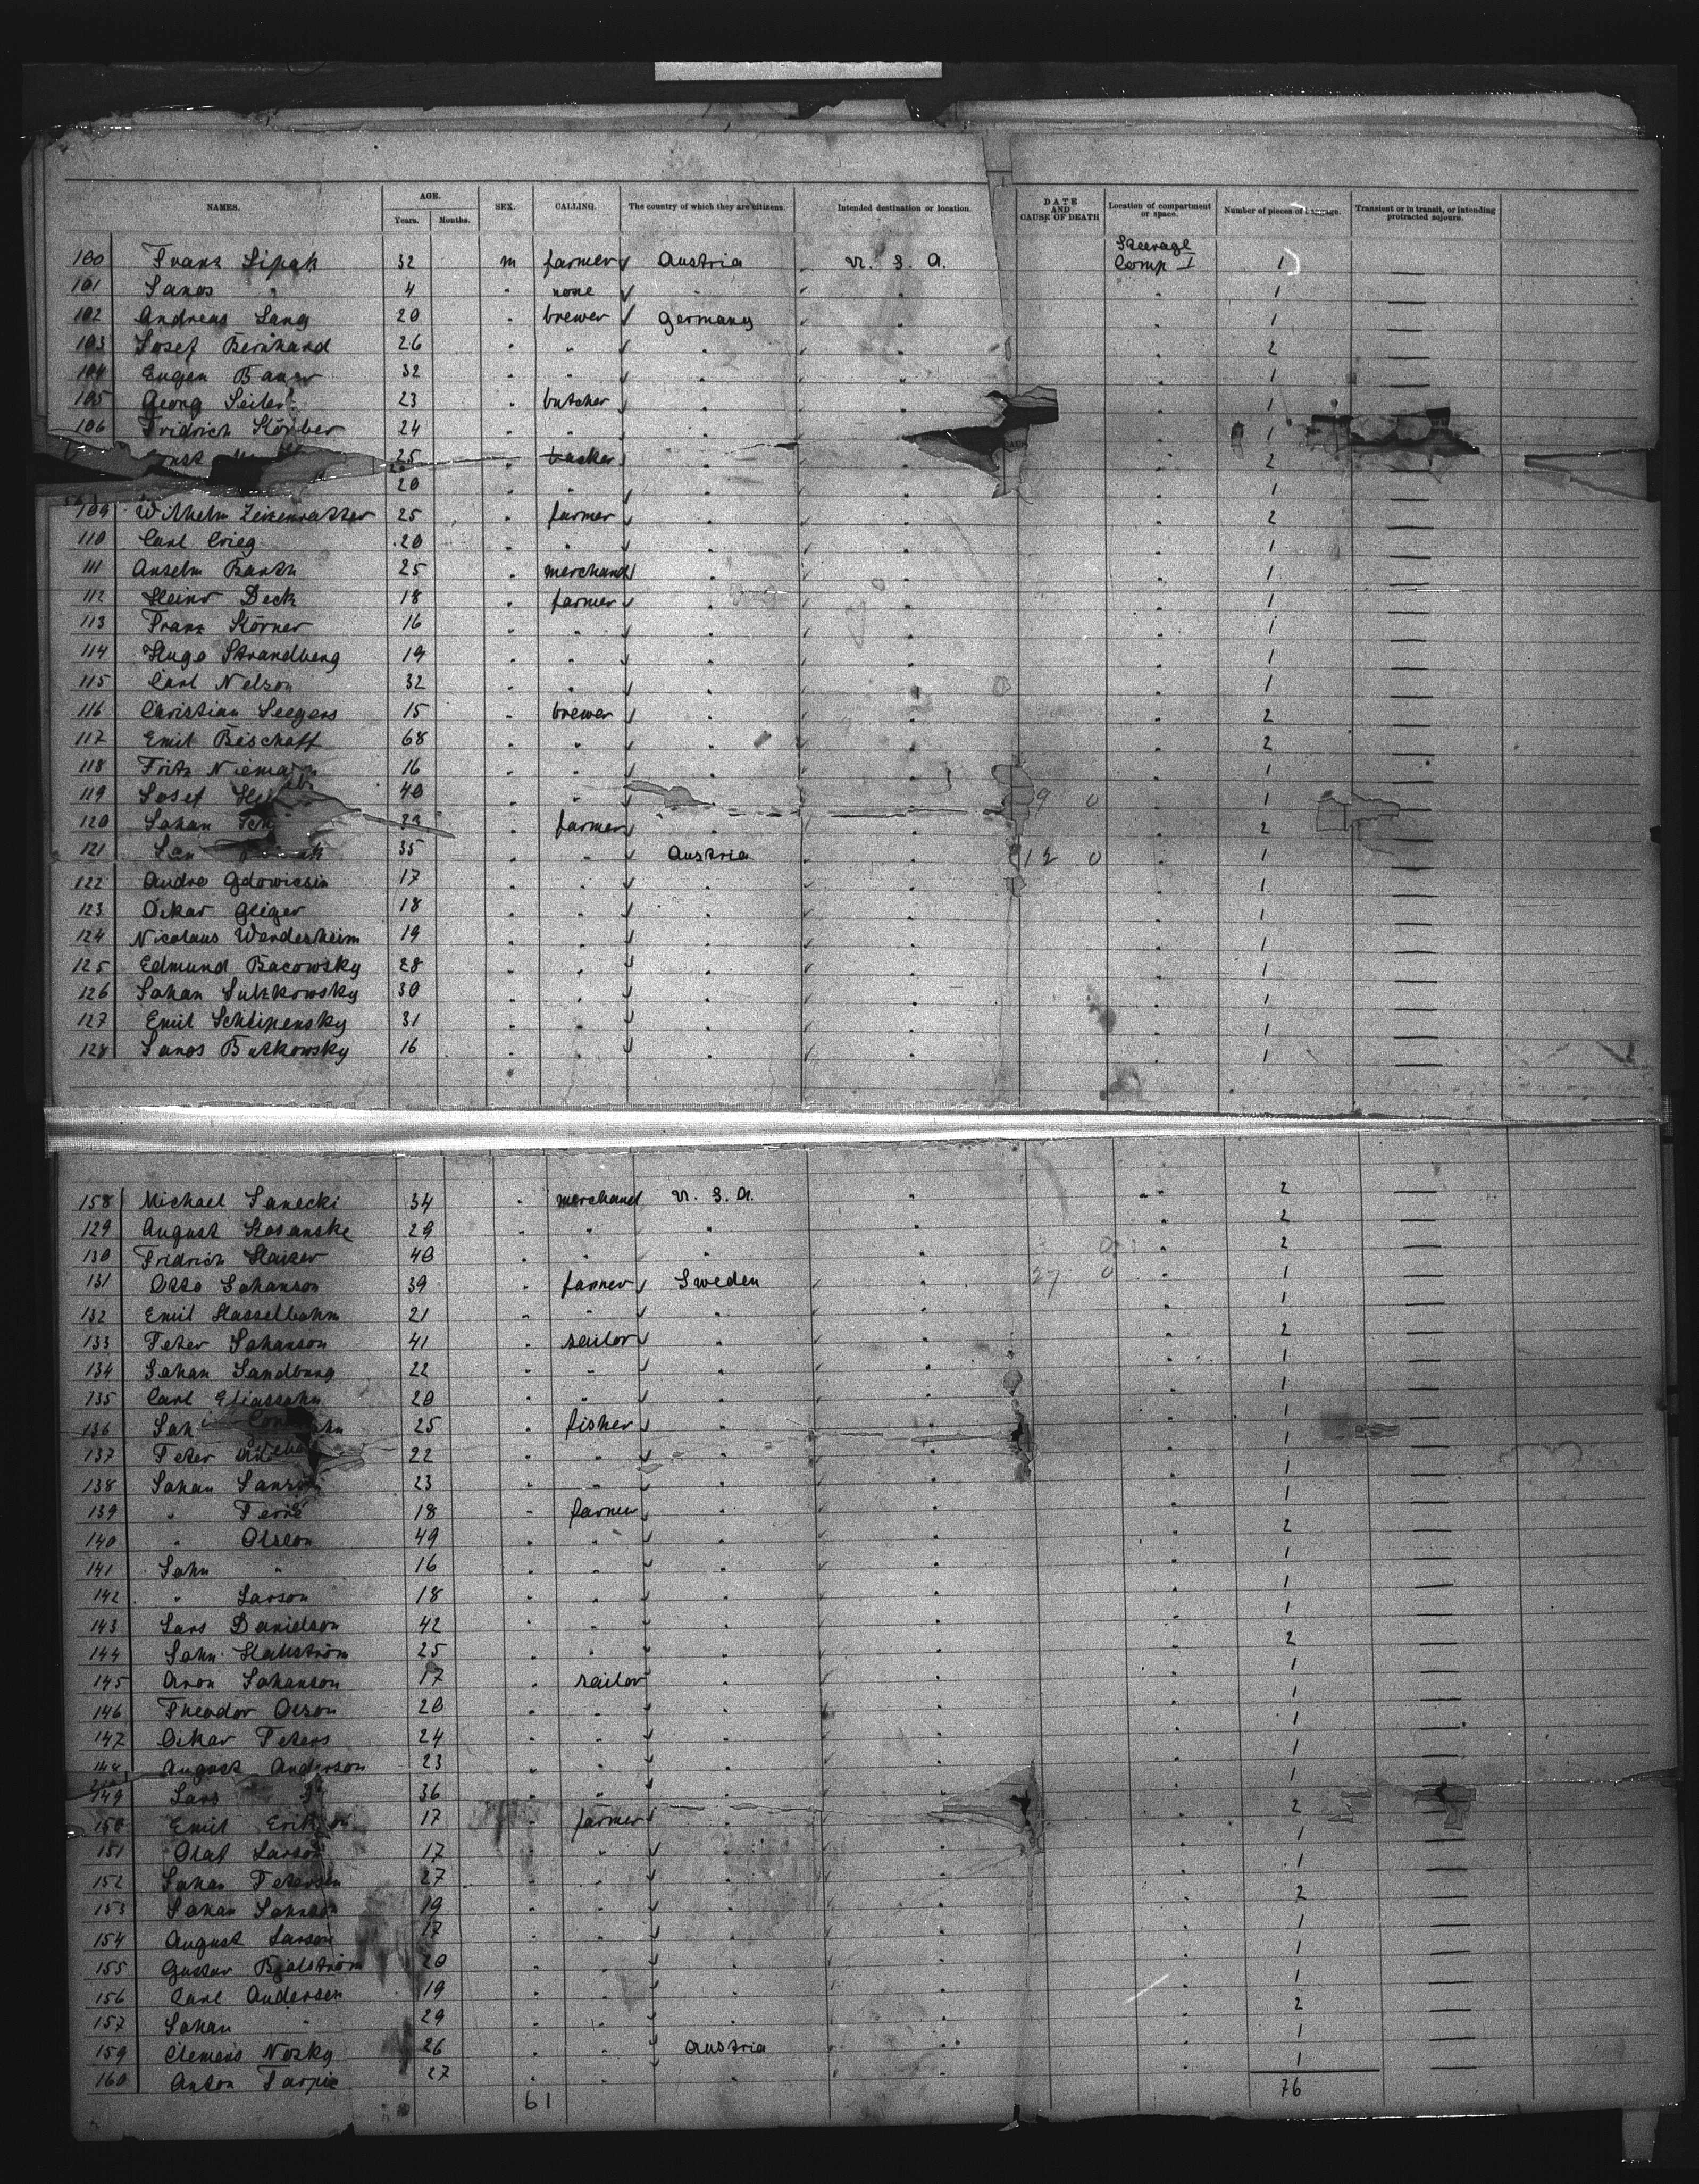 NAMES. AGE. Years. Months. SEX. CALLING. The country of which they are citizens. Intended destination or location. DATE AND CAUSE OF DEATH Location of compartment or space. Number of pieces of baggage. Transient or in transit, or intending protracted sojourn.
100 Franz Lipak 32 m farmer Austria U. S. A. Steerage Comp I 1
101 Janos " 4 " none " " " 1 —
102 Andreas Lang 20 " brewer Germany " " 1 —
103 Josef Bernhard 26 " " " " " 2 —
104 Eugen Bauer 32 " " " " " 1 —
105 Georg Seiler 23 " butcher " " " 1 —
106 Fridrich Körber 24 " " " " 1
25 " backer " " " 2
20 " " " " " 1 —
109 Wilhelm 25 " farmer " " " 2 —
110 Carl Crieg 20 " " " " " 1 —
111 Anselm Barth 25 " merchand " " " 1 —
112 Heinr Deck 18 " farmer " " " 1 —
113 Franz Körner 16 " " " " " 1 —
114 Hugo Strandberg 19 " " " " " 1 —
115 Carl Nelson 32 " " " " " 1 —
116 Christian Seegers 15 " brewer " " " 2 —
117 Emil Bischoff 68 " " " " " 2 —
118 Fritz Niemann 16 " " " " " 1 —
119 Josef 40 " " " 9 0 " 1 —
120 Johan " farmer " " " 2 —
121 35 " " Austria " 12 0 " 1 —
122 Andro Gdowicsin 17 " " " " " 1 —
123 Oskar Gliger 18 " " " " " 1 —
124 Nicolaus Werdesheim 19 " " " " " 1 —
125 Edmund Bacowsky 28 " " " " " 1 —
126 Johan Sulzkowsky 30 " " " " " 1 —
127 Emil Schlipensky 31 " " " " " 1 —
128 Janos Butkowsky 16 " " " " " 1 —
158 Michael Janecki 34 " merchand U. S. A. " " " 2 —
129 August Kosanske 29 " " " " " 2 —
130 Fridrich Kaiser 40 " " " " 0 " 2 —
131 Otto Johanson 39 " farmer Sweden " 37 0 " 1 —
132 Emil Hasselbohm 21 " " " " " 1 —
133 Peter Johanson 41 " sailor " " " 2 —
134 Johan Sandburg 22 " " " " " 1 —
135 Carl Eliassohn 20 " " " " " 1 —
136 25 " fisher " " " 1 —
137 Peter 22 " " " " " 1 —
138 Johan 23 " " " " " 1 —
139 " 18 " farmer " " " 1 —
140 " Olson 49 " " " " " 2 —
141 John " 16 " " " " " 1 —
142 " Larson 18 " " " " " 1 —
143 Lars Danielson 42 " " " " " 1 —
144 John Hallström 25 " " " " " 2 —
145 Aron Johanson 17 " sailor " " " 1 —
146 Theodor Olson 20 " " " " " 1 —
147 Oskar Peters 24 " " " " " 1 —
148 August Anderson 23 " " " " " 1 —
149 Lars 36 " " " " " 1 —
150 Emil 17 " farmer " " " 2 —
151 Olaf Larson 17 " " " " " 1 —
152 Johan Petersen 27 " " " " " 1 —
153 Johan 19 " " " " " 2 —
154 August Larson 17 " " " " " 1 —
155 Gustav Bjalström 20 " " " " " 1 —
156 Carl Andersen 19 " " " " " 1 —
157 Johan " 29 " " " " " 2 —
159 Clemens Nosky 26 " " Austria " " 1 —
160 Anton 27 " " " " " 1 —
61 76